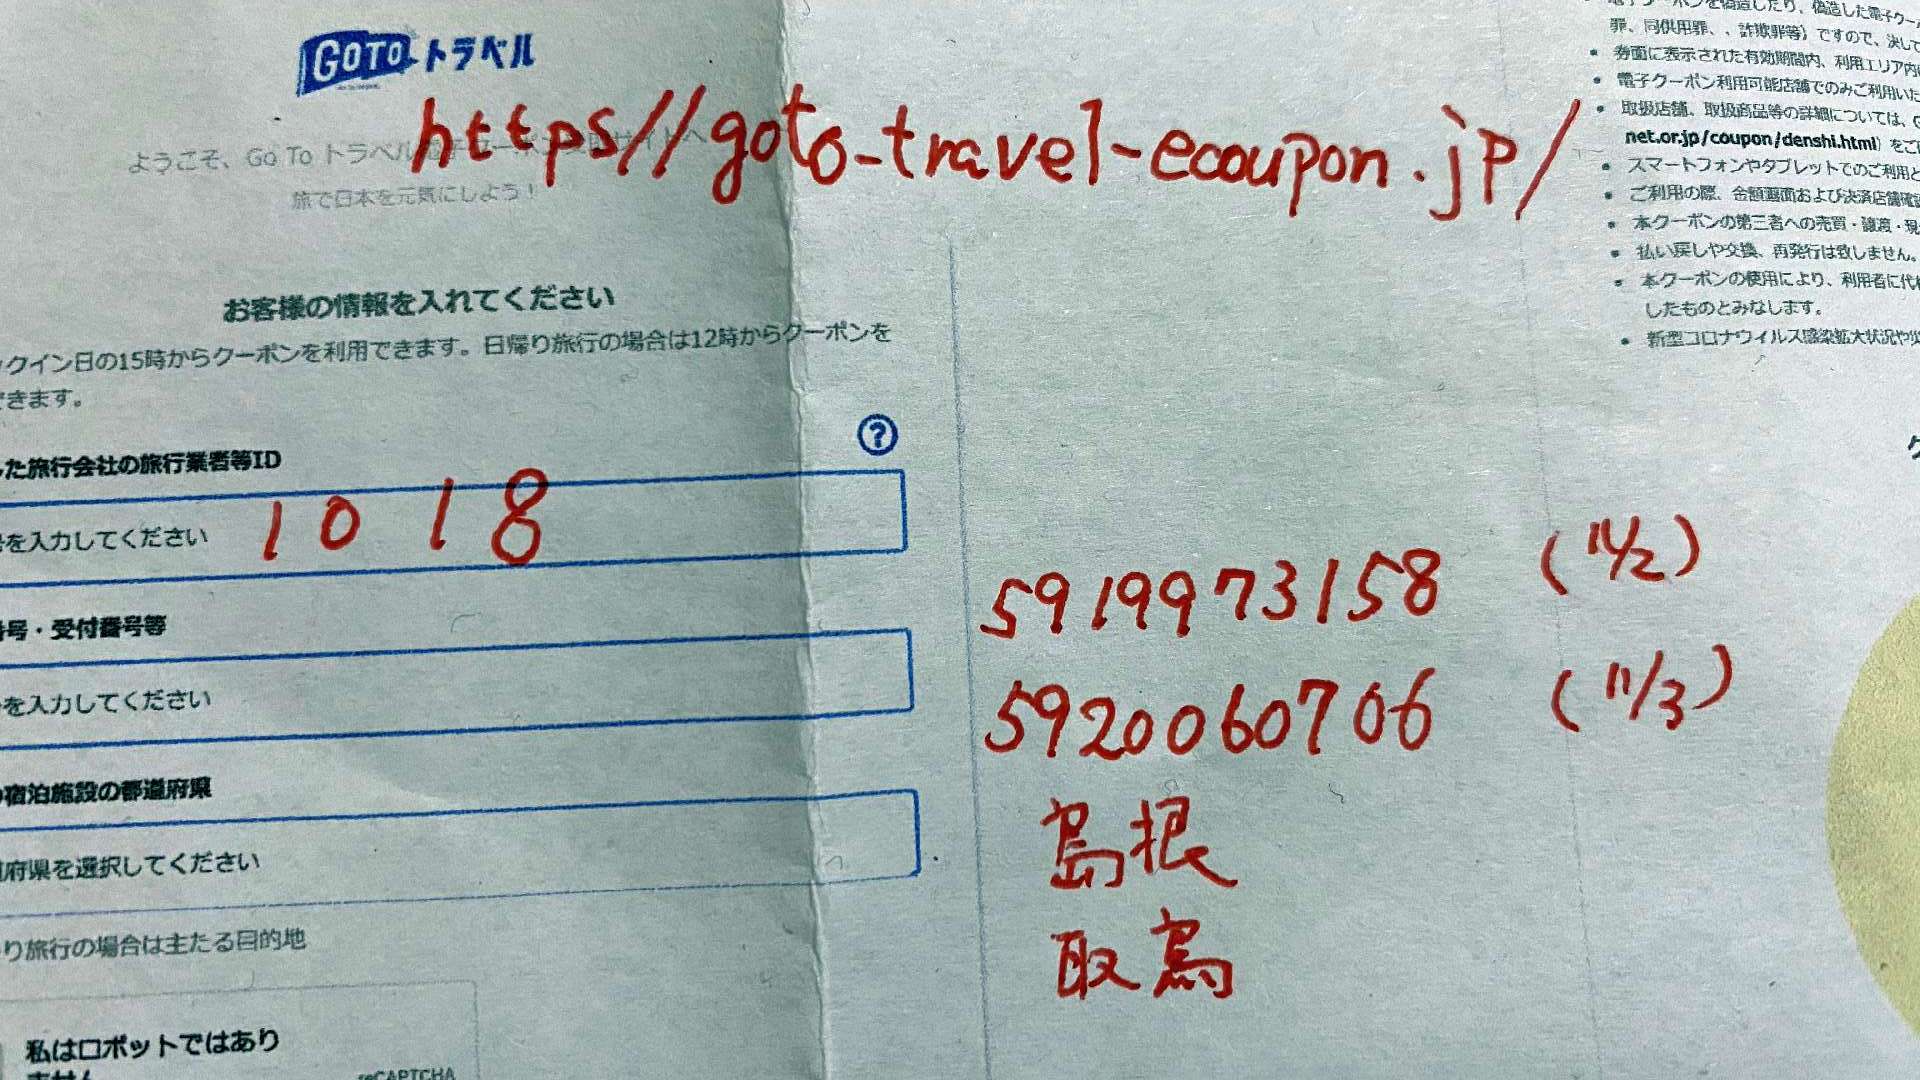 GOTO トラベル
https//goto-travel-ecoupon.jp/
ようこそ、Go To トラベル
旅で日本を元気にしよう！
お客様の情報を入れてください
クイン日の15時からクーポンを利用できます。日帰り旅行の場合は12時からクーポンを
きます。
?
た旅行会社の旅行業者等ID
を入力してください 1018
号・受付番号等
を入力してください
宿泊施設の都道府県
府県を選択してください
り旅行の場合は主たる目的地
私はロボットではあり
ません
reCAPTCHA
5919973158 (11/2)
5920060706 (11/3)
島根
取鳥
罪、同供用罪、、詐欺罪等) ですので、決して
券面に表示された有効期間内、利用エリア内
電子クーポン利用可能店舗でのみご利用いた
取扱店舗、取扱商品等の詳細については、G
net.or.jp/coupon/denshi.html) をご
スマートフォンやタブレットでのご利用と
ご利用の際、金額画面および決済店舗確認
本クーポンの第三者への売買・譲渡・現
払い戻しや交換、再発行は致しません。
本クーポンの使用により、利用者に代わ
したものとみなします。
新型コロナウィルス感染拡大状況や災